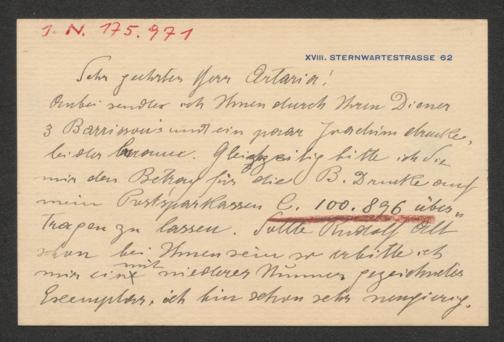 J. N. 175.971
XVIII. STERNWARTESTRASSE 62
Sehr geehrter Herr Artaria!
Anbei sendte ich Ihnen durch Ihren Diener
3 Barrisons und ein paar Joachim drucke,
leider braune. Gleichzeitig bitte ich Sie
mir den Betrag für die B. Drucke auf
mein Postsparkassen C. 100.896 über„
tragen zu lassen. Sollte Rudolf Alt
schon bei Ihnen sein so erbitte ich
mir ein mit niederer Nummer gezeichnetes
Exemplar, ich bin schon sehr neugierig.